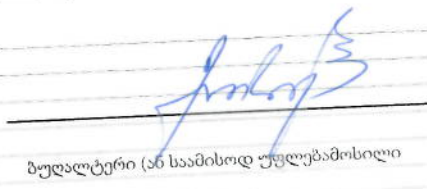 ბუღალტერი (ან საამისოდ უფლებამოსილი